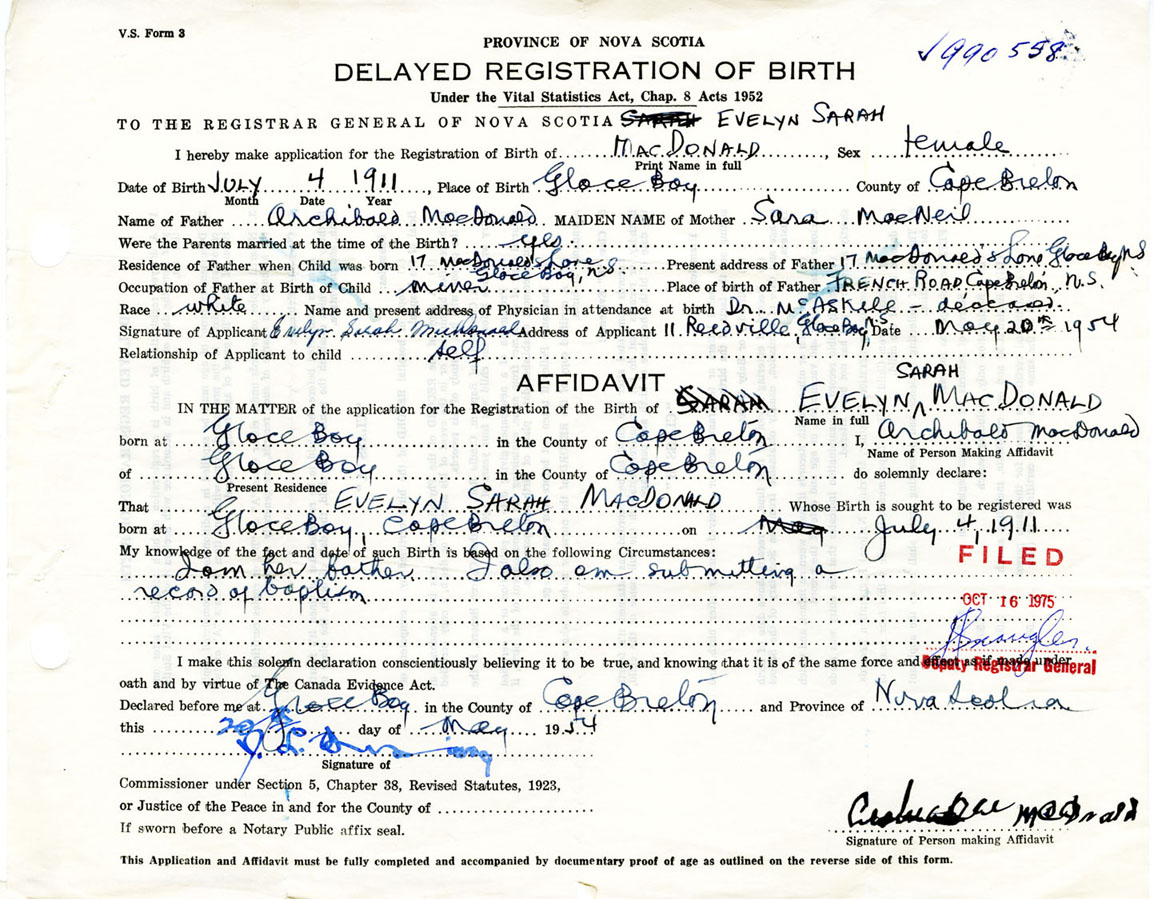 V.S. Form 3
PROVINCE OF NOVA SCOTIA
990558
DELAYED REGISTRATION OF BIRTH
Under the Vital Statistics Act, Chap. 8 Acts 1952
TO THE REGISTRAR GENERAL OF NOVA SCOTIA SARAH EVELYN SARAH
I hereby make application for the Registration of Birth of MACDONALD, Sex female
Print Name in full
Date of Birth JULY 4 1911, Place of Birth Glace Bay County of Cape Breton
Month Date Year
Name of Father Archibald MacDonald MAIDEN NAME of Mother Sara MacNeil
Were the Parents married at the time of the Birth? yes
Residence of Father when Child was born 17 MacDonald's Lane Glace Bay, N.S. Present address of Father 17 MacDonald's Lane, Glace Bay NS
Occupation of Father at Birth of Child miner Place of birth of Father FRENCH ROAD Cape Breton N.S.
Race white Name and present address of Physician in attendance at birth Dr. McAskill - deceased.
Signature of Applicant Evelyn Sarah Address of Applicant 11 Reedville, Glace Bay, NS Date May 20th 1954
Relationship of Applicant to child self
AFFIDAVIT
SARAH
IN THE MATTER of the application for the Registration of the Birth of SARAH EVELYN MACDONALD
Name in full
born at Glace Bay in the County of Cape Breton I, Archibald MacDonald
Name of Person Making Affidavit
of Glace Bay in the County of Cape Breton do solemnly declare:
Present Residence
That EVELYN SARAH MACDONALD Whose Birth is sought to be registered was
born at Glace Bay, Cape Breton on May July 4, 1911
My knowledge of the fact and date of such Birth is based on the following Circumstances:
I am her father. I also am submitting a
record of baptism
FILED
OCT 16 1975
I make this solemn declaration conscientiously believing it to be true, and knowing that it is of the same force and effect as if made under
Deputy Registrar General
oath and by virtue of The Canada Evidence Act.
Declared before me at Glace Bay in the County of Cape Breton and Province of Nova Scotia
this 20th day of May 1954
Signature of
Commissioner under Section 5, Chapter 38, Revised Statutes, 1923,
or Justice of the Peace in and for the County of
If sworn before a Notary Public affix seal.
McDonald
Signature of Person making Affidavit
This Application and Affidavit must be fully completed and accompanied by documentary proof of age as outlined on the reverse side of this form.